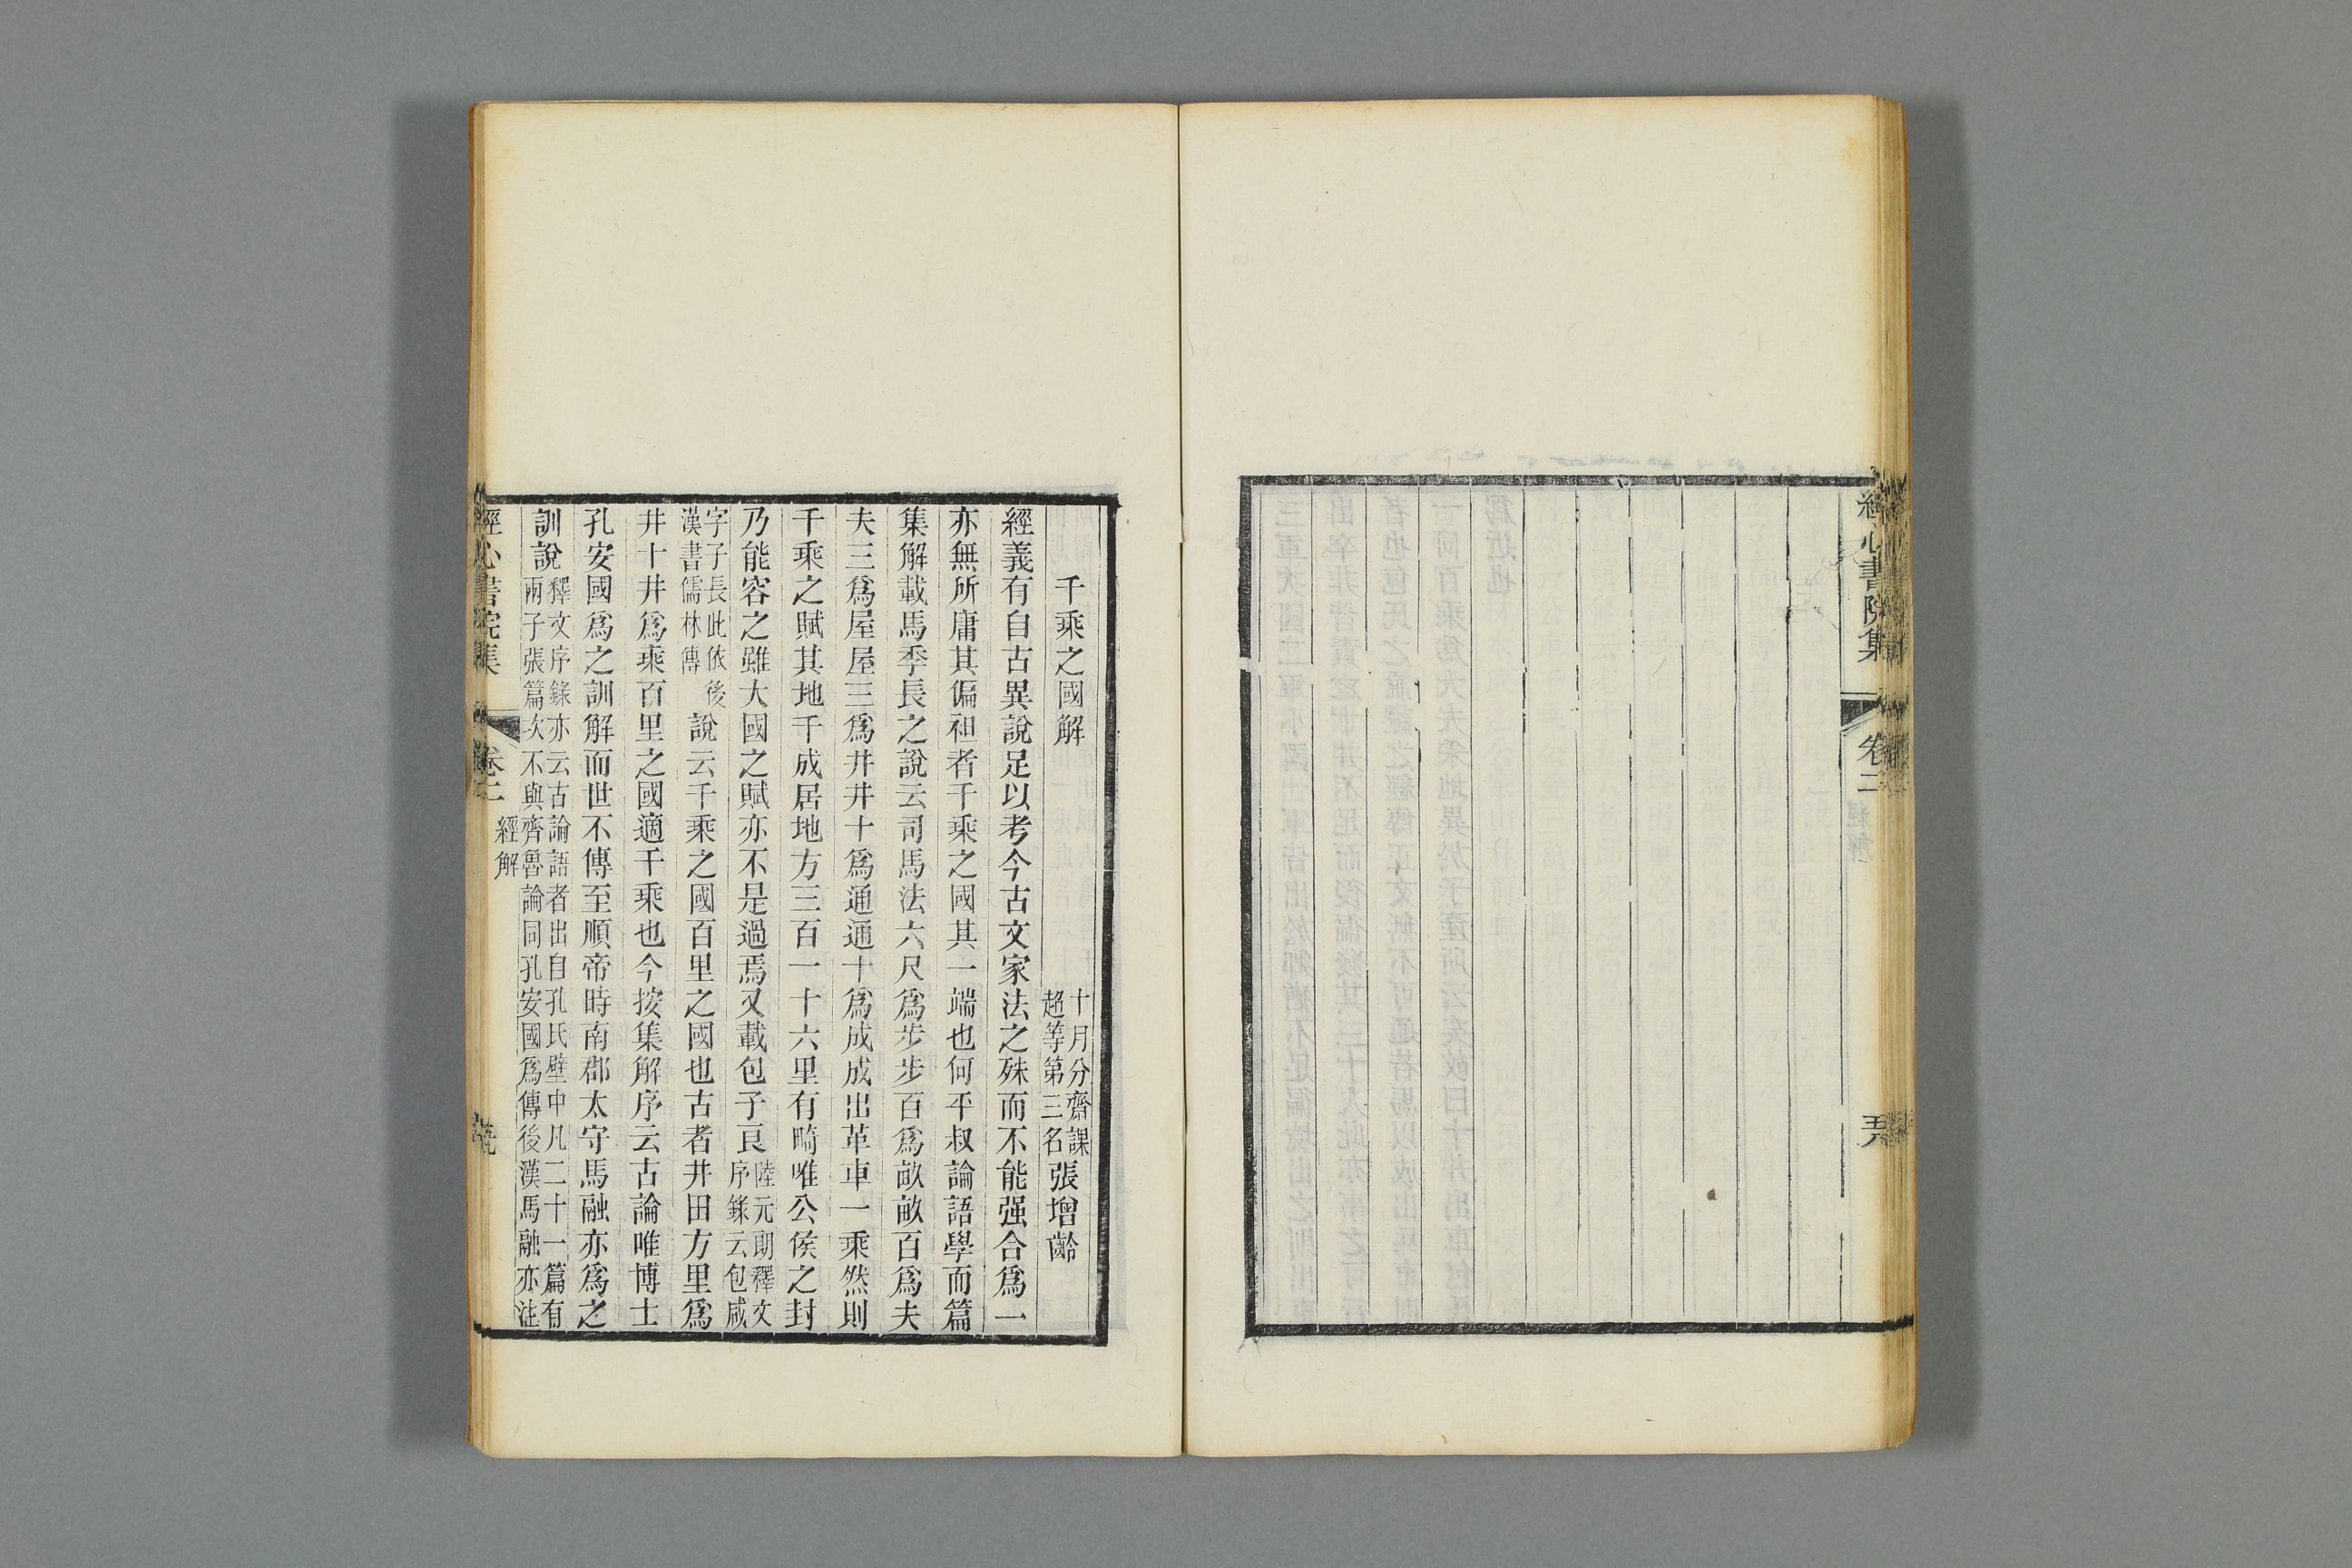 經心書院集
卷二
經解
千乘之國解
十月分齋課
超等第三名
張增齡
經義有自古異說足以考今古文家法之殊而不能强合爲一
亦無所庸其偏袒者千乘之國其一端也何平叔論語學而篇
集解載馬季長之說云司馬法六尺爲步步百爲畝畝百爲夫
夫三爲屋屋三爲井井十爲通通十爲成成出革車一乘然則
千乘之賦其地千成居地方三百一十六里有畸唯公侯之封
乃能容之雖大國之賦亦不是過焉又載包子良陸元朗釋文
序錄云包咸
字子長此依後
漢書儒林傳
說云千乘之國百里之國也古者井田方里爲
井十井爲乘百里之國適千乘也今按集解序云古論唯博士
孔安國爲之訓解而世不傳至順帝時南郡太守馬融亦爲之
訓說釋文序錄亦云古論語者出自孔氏壁中凡二十一篇有
兩子張篇次不與齊魯論同孔安國爲傳後漢馬融亦注
經心書院集
卷二
經解